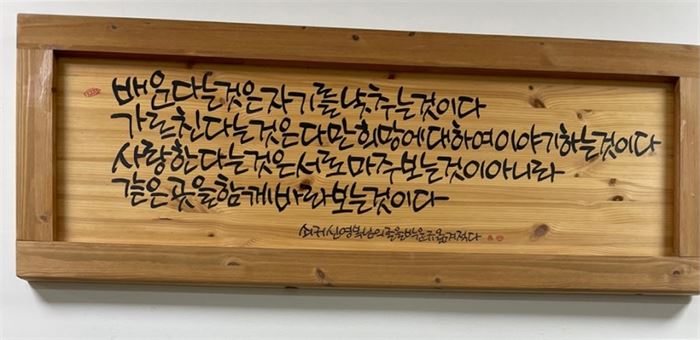 배운다는것은자기를낮추는것이다
가르친다는것은다만희망에대하여이야기하는것이다
사랑한다는것은서로마주보는것이아니라
같은곳을함께바라보는것이다
쇠귀신영복님의글을박윤규옮겨적다